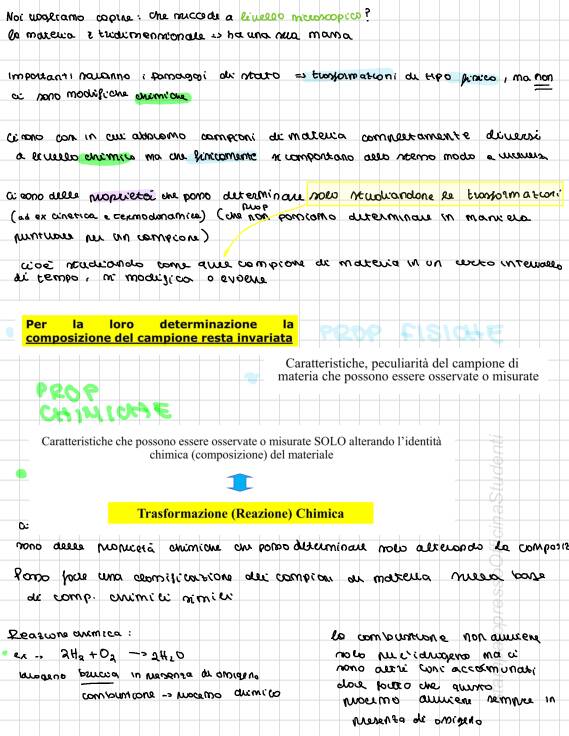 Noi vogliamo capire: che succede a livello microscopico?
la materia è tridimensionale => ha una sua massa
Importanti saranno i passaggi di stato => trasformazioni di tipo fisico, ma non
ci sono modifiche chimiche
Ci sono casi in cui abbiamo campioni di materia completamente diversi
a livello chimico ma che fisicamente si comportano allo stesso modo e viceversa
Ci sono delle proprietà che posso determinare solo studiandone le trasformazioni
(ad ex cinetica e termodinamica) (che prop non possiamo determinare in maniera
puntuale per un campione)
cioè studiando come quel campione di materia in un certo intervallo
di tempo, si modifica o evolve
Per la loro determinazione la
composizione del campione resta invariata
PROP FISICHE
Caratteristiche, peculiarità del campione di
materia che possono essere osservate o misurate
PROP
CHIMICHE
Caratteristiche che possono essere osservate o misurate SOLO alterando l'identità
chimica (composizione) del materiale
Trasformazione (Reazione) Chimica
Ci
sono delle proprietà chimiche che posso determinare solo alterando la composiz
Posso fare una classificazione dei campioni di materia sulla base
di comp. chimici simili
Reazione chimica:
ex -> 2H₂ + O₂ -> 2H₂O
idrogeno brucia in presenza di ossigeno
combustione -> processo chimico
la combustione non avviene
solo per l'idrogeno ma ci
sono altri casi accomunati
dal fatto che questo
processo avviene sempre in
presenza di ossigeno